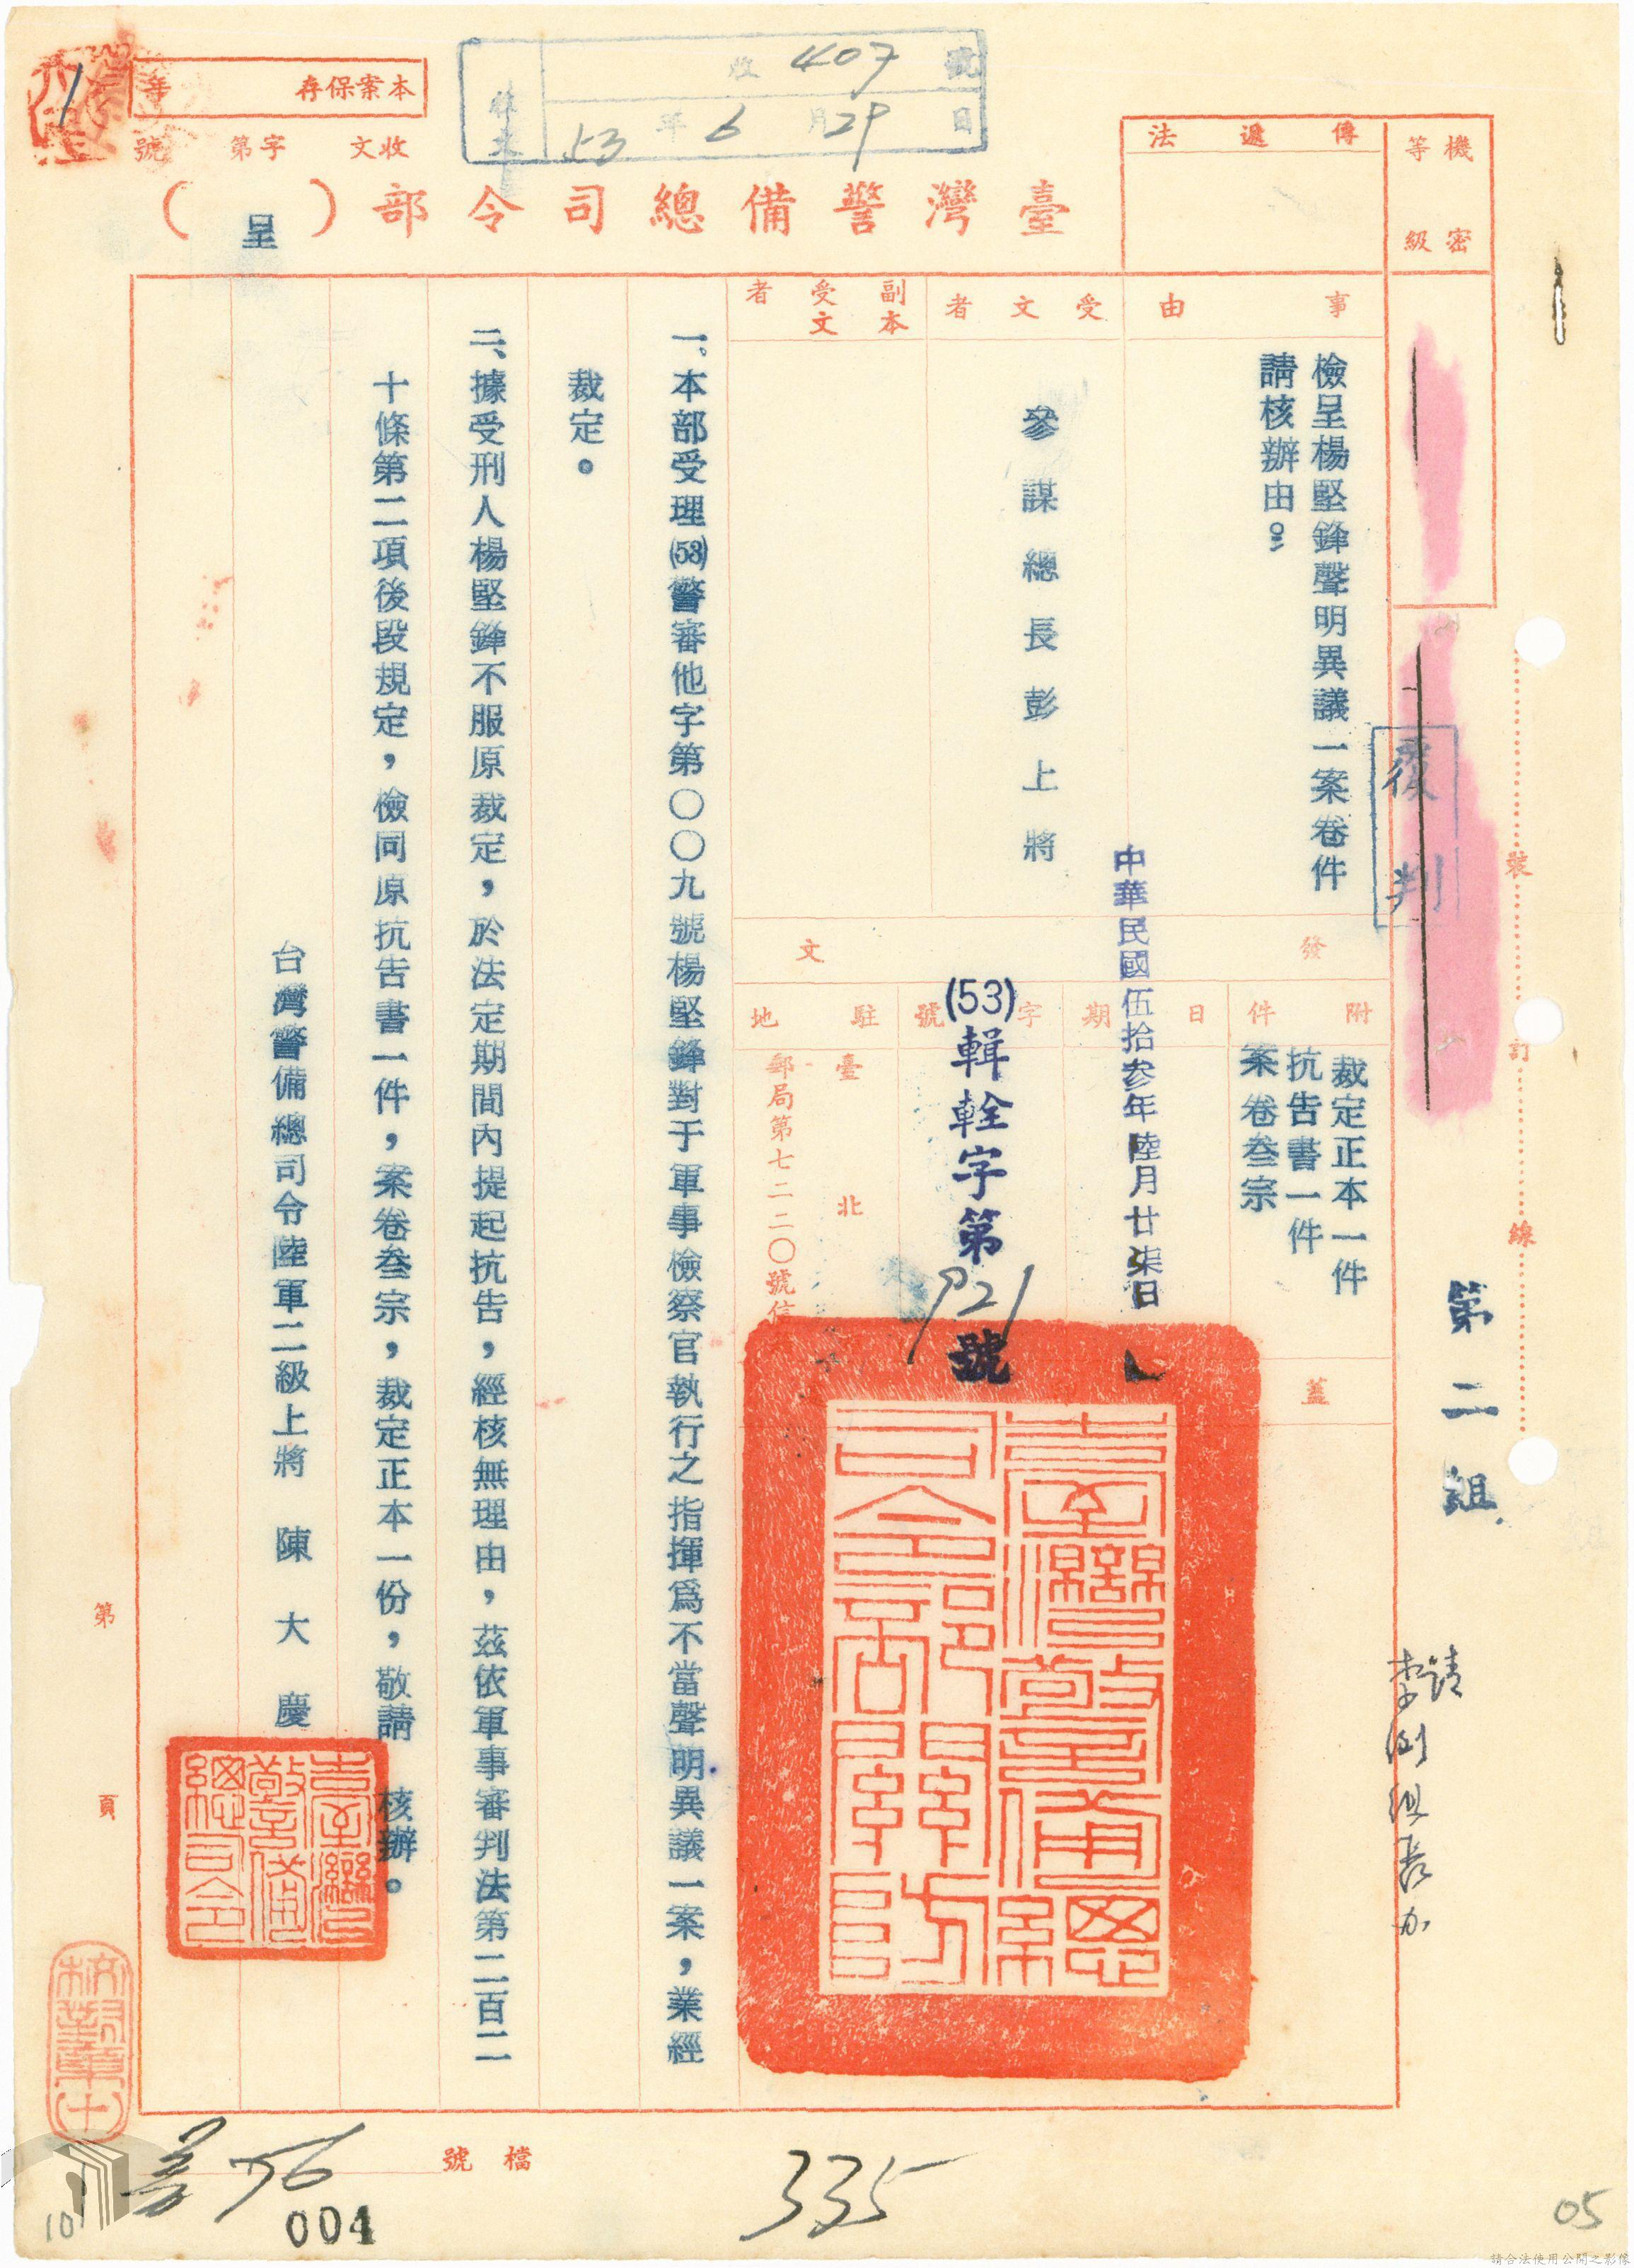 收 407 號
收文 53年6月29日
本案保存 年
收文 字第 號
1
臺灣警備總司令部（呈）
機密等級
傳遞法
事由
檢呈楊堅鋒聲明異議一案卷件
請核辦由：
受文者
參謀總長彭上將
副本受文者
發文
附件
裁定正本一件
抗告書一件
案卷叁宗
日期
中華民國伍拾叁年陸月廿柒日
字號
(53)輯輇字第921號
駐地
臺北
郵局第七二二〇號信
蓋
臺灣警備總司令部關防
一。本部受理(53)警審他字第〇〇九號楊堅鋒對于軍事檢察官執行之指揮爲不當聲明異議一案，業經
裁定。
二、據受刑人楊堅鋒不服原裁定，於法定期間內提起抗告，經核無理由，茲依軍事審判法第二百二
十條第二項後段規定，檢同原抗告書一件，案卷叁宗，裁定正本一份，敬請 核辦。
台灣警備總司令陸軍二級上將 陳大慶
臺灣警備總司令
覆判
裝訂線
第二組
請
李副組長办
第 頁
檔號
335
004
10
05
請合法使用公開之影像